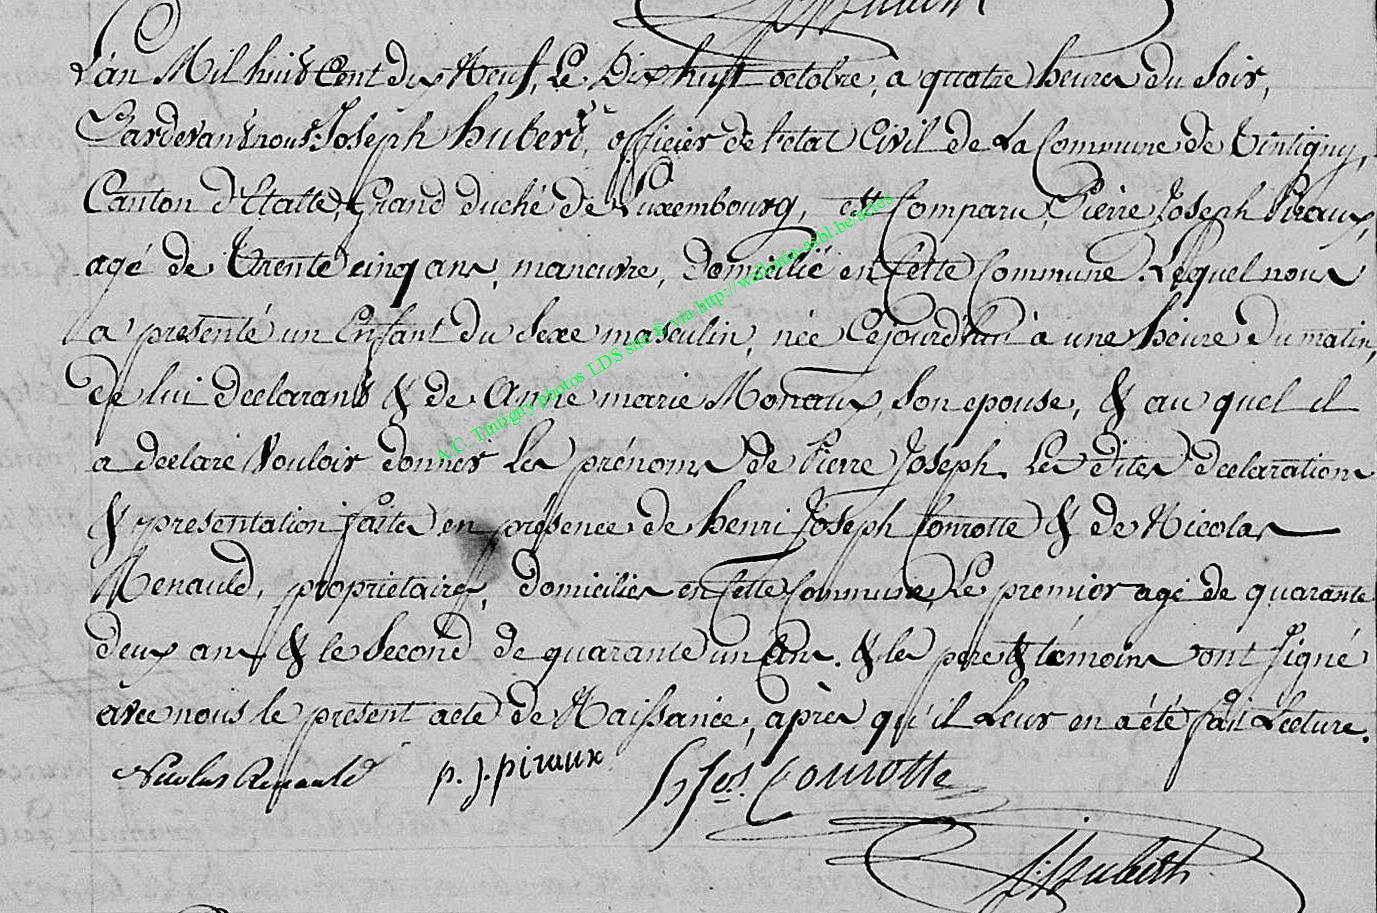 L'an Mil huit Cent dix Neuf, Le Dix huit octobre, a quatre heures du soir,
Pardevant nous Joseph hubert, officier de l'etat Civil de La Commune de Tintigny,
Canton d'Etalle, Grand duché de Luxembourg, est Comparu, Pierre Joseph Piraux,
agé de Trente cinq ans, maneuvre, domicilié en Cette Commune. Lequel nous
a presenté un Enfant du Sexe masculin, née Cejourd'hui à une heure du matin,
de lui declarant & de Anne marie Monaux, Son epouse, & au quel il
a declaré Vouloir donner Les prénoms de Pierre Joseph. Les dites declaration
& presentation faites en presence de henri Joseph Conrotte & de Nicolas
Renauld, propriétaires, domiciliés en Cette Commune, Le premier agé de quarante
deux ans & le Second de quarante un ans. & les pere & témoins ont Signé
avec nous le present acte de Naissance, après qu'il Leur en a été fait Lecture.
Nicolas Renauld p. j. piraux h Jos. Conrotte
J: hubert
A.C. Tintigny photos LDS via http://wallonia-asbl.be/actes